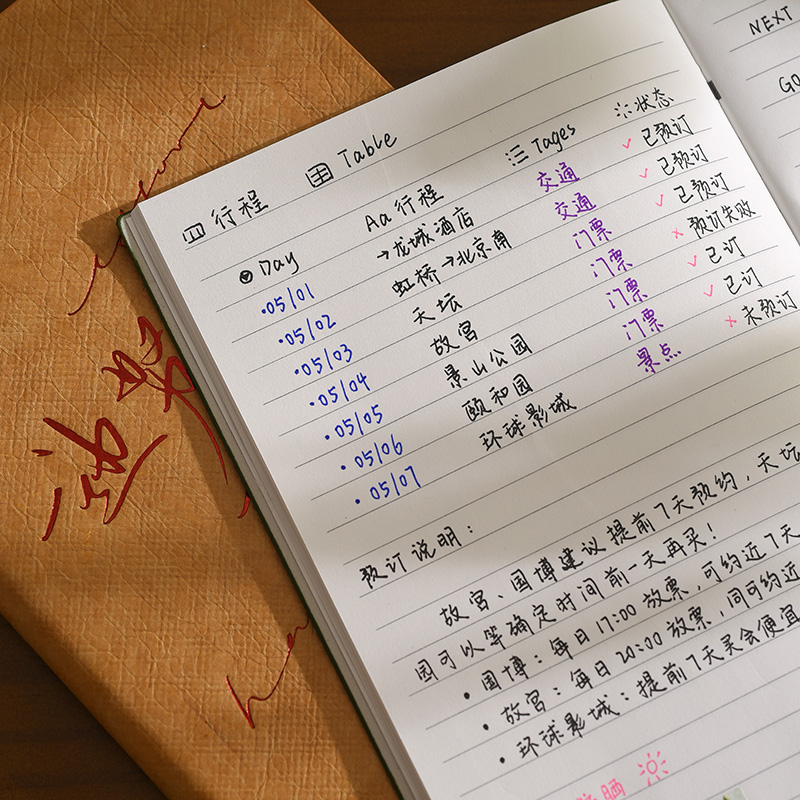 行程 Table
Day Aa 行程 Tages 状态
·05/01 →龙城酒店 交通 ✓ 已预订
·05/02 虹桥→北京南 交通 ✓ 已预订
·05/03 天坛 门票 ✓ 已预订
·05/04 故宫 门票 × 预订失败
·05/05 景山公园 门票 ✓ 已订
·05/06 颐和园 门票 ✓ 已订
·05/07 环球影城 景点 × 未预订
预订说明：
故宫、国博建议提前7天预约，天坛
园可以等确定时间前一天再买！
·国博：每日17:00放票，可约近7天
·故宫：每日20:00放票，同可约近
·环球影城：提前7天买会便宜
晒
NEXT
GO